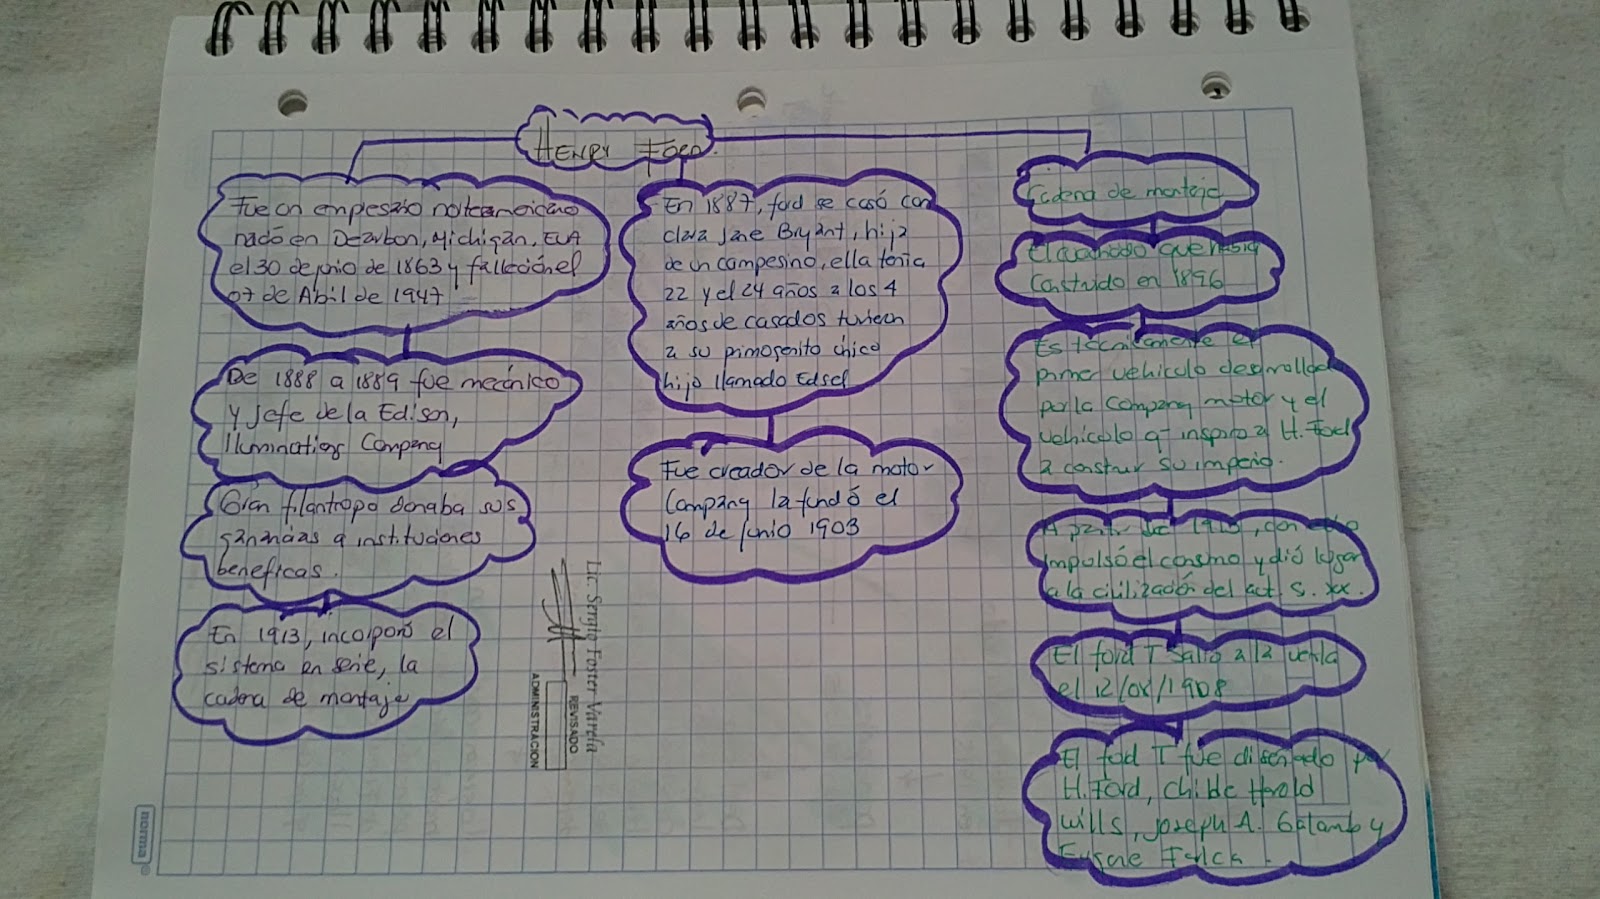 HENRY FORD.
Fue un empresario norteamericano
nació en Dearbon, Michigan, EUA
el 30 de junio de 1863 y falleción el
07 de Abril de 1947
De 1888 a 1889 fue mecánico
y Jefe de la Edison,
Iluminating Company
Gran filantropo donaba sus
ganancias a instituciones
beneficas.
En 1913, incorporó el
sistema en serie, la
cadena de montaje
En 1887, ford se casó con
clara Jane Bryant, hija
de un campesino, ella tenia
22 y el 24 años a los 4
años de casados tuvieron
a su primogenito único
hijo llamado Edsel
Fue creador de la motor
Company la fundó el
16 de Junio 1903
Cadena de montaje
El cuadriciclo que había
Construido en 1896
Es técnicamente el
primer vehiculo desarrollado
por la Company motor y el
vehiculo q inspiro a H. Ford
a construir su imperio.
A partir de 1913, con
impulsó el consumo y dió lugar
a la civilización del S. XX.
El ford T salio a la venta
el 12/08/1908
El ford T fue diseñado por
H. Ford, Childe Harold
Wills, Joseph A. Galamb y
Eugene Farkas
Lic. Sergio Foster Varela
REVISADO
ADMINISTRACION
norma